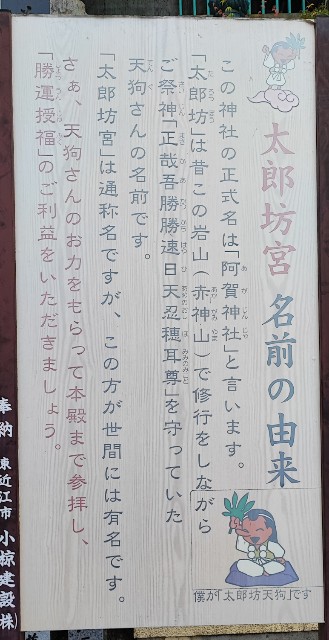 太郎坊宮 名前の由来
この神社の正式名は「阿賀神社」と言います。
「太郎坊」は昔この岩山(赤神山)で修行をしながら
ご祭神「正哉吾勝勝速日天忍穂耳尊」を守っていた
天狗さんの名前です。
「太郎坊宮」は通称名ですが、この方が世間には有名です。
さぁ、天狗さんのお力をもらって本殿まで参拝し、
「勝運授福」のご利益をいただきましょう。
僕が「太郎坊天狗」です
奉納 東近江市 小椋建設㈱